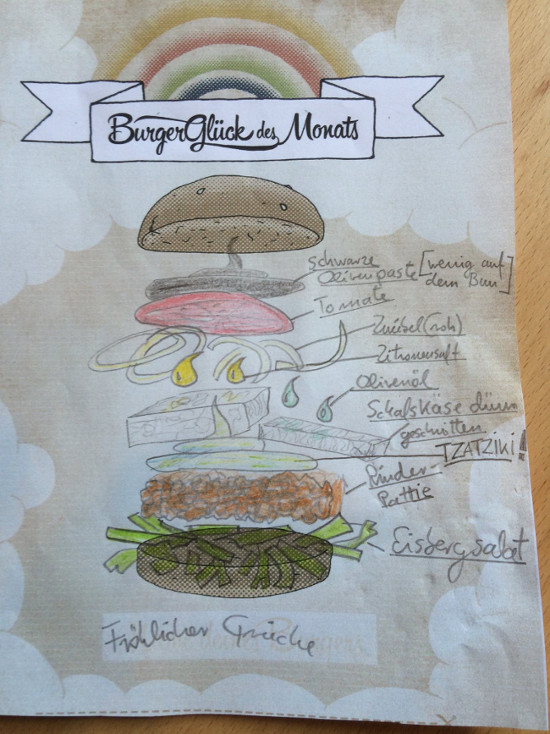 BurgerGlück des Monats
schwarze [wenig auf
Olivenpaste dem Bun]
Tomate
Zwiebel (roh)
Zitronensaft
Olivenöl
Schafskäse dünn
geschnitten
TZATZIKI!
Rinder-
Pattie
Eisbergsalat
Fröhlicher Grieche